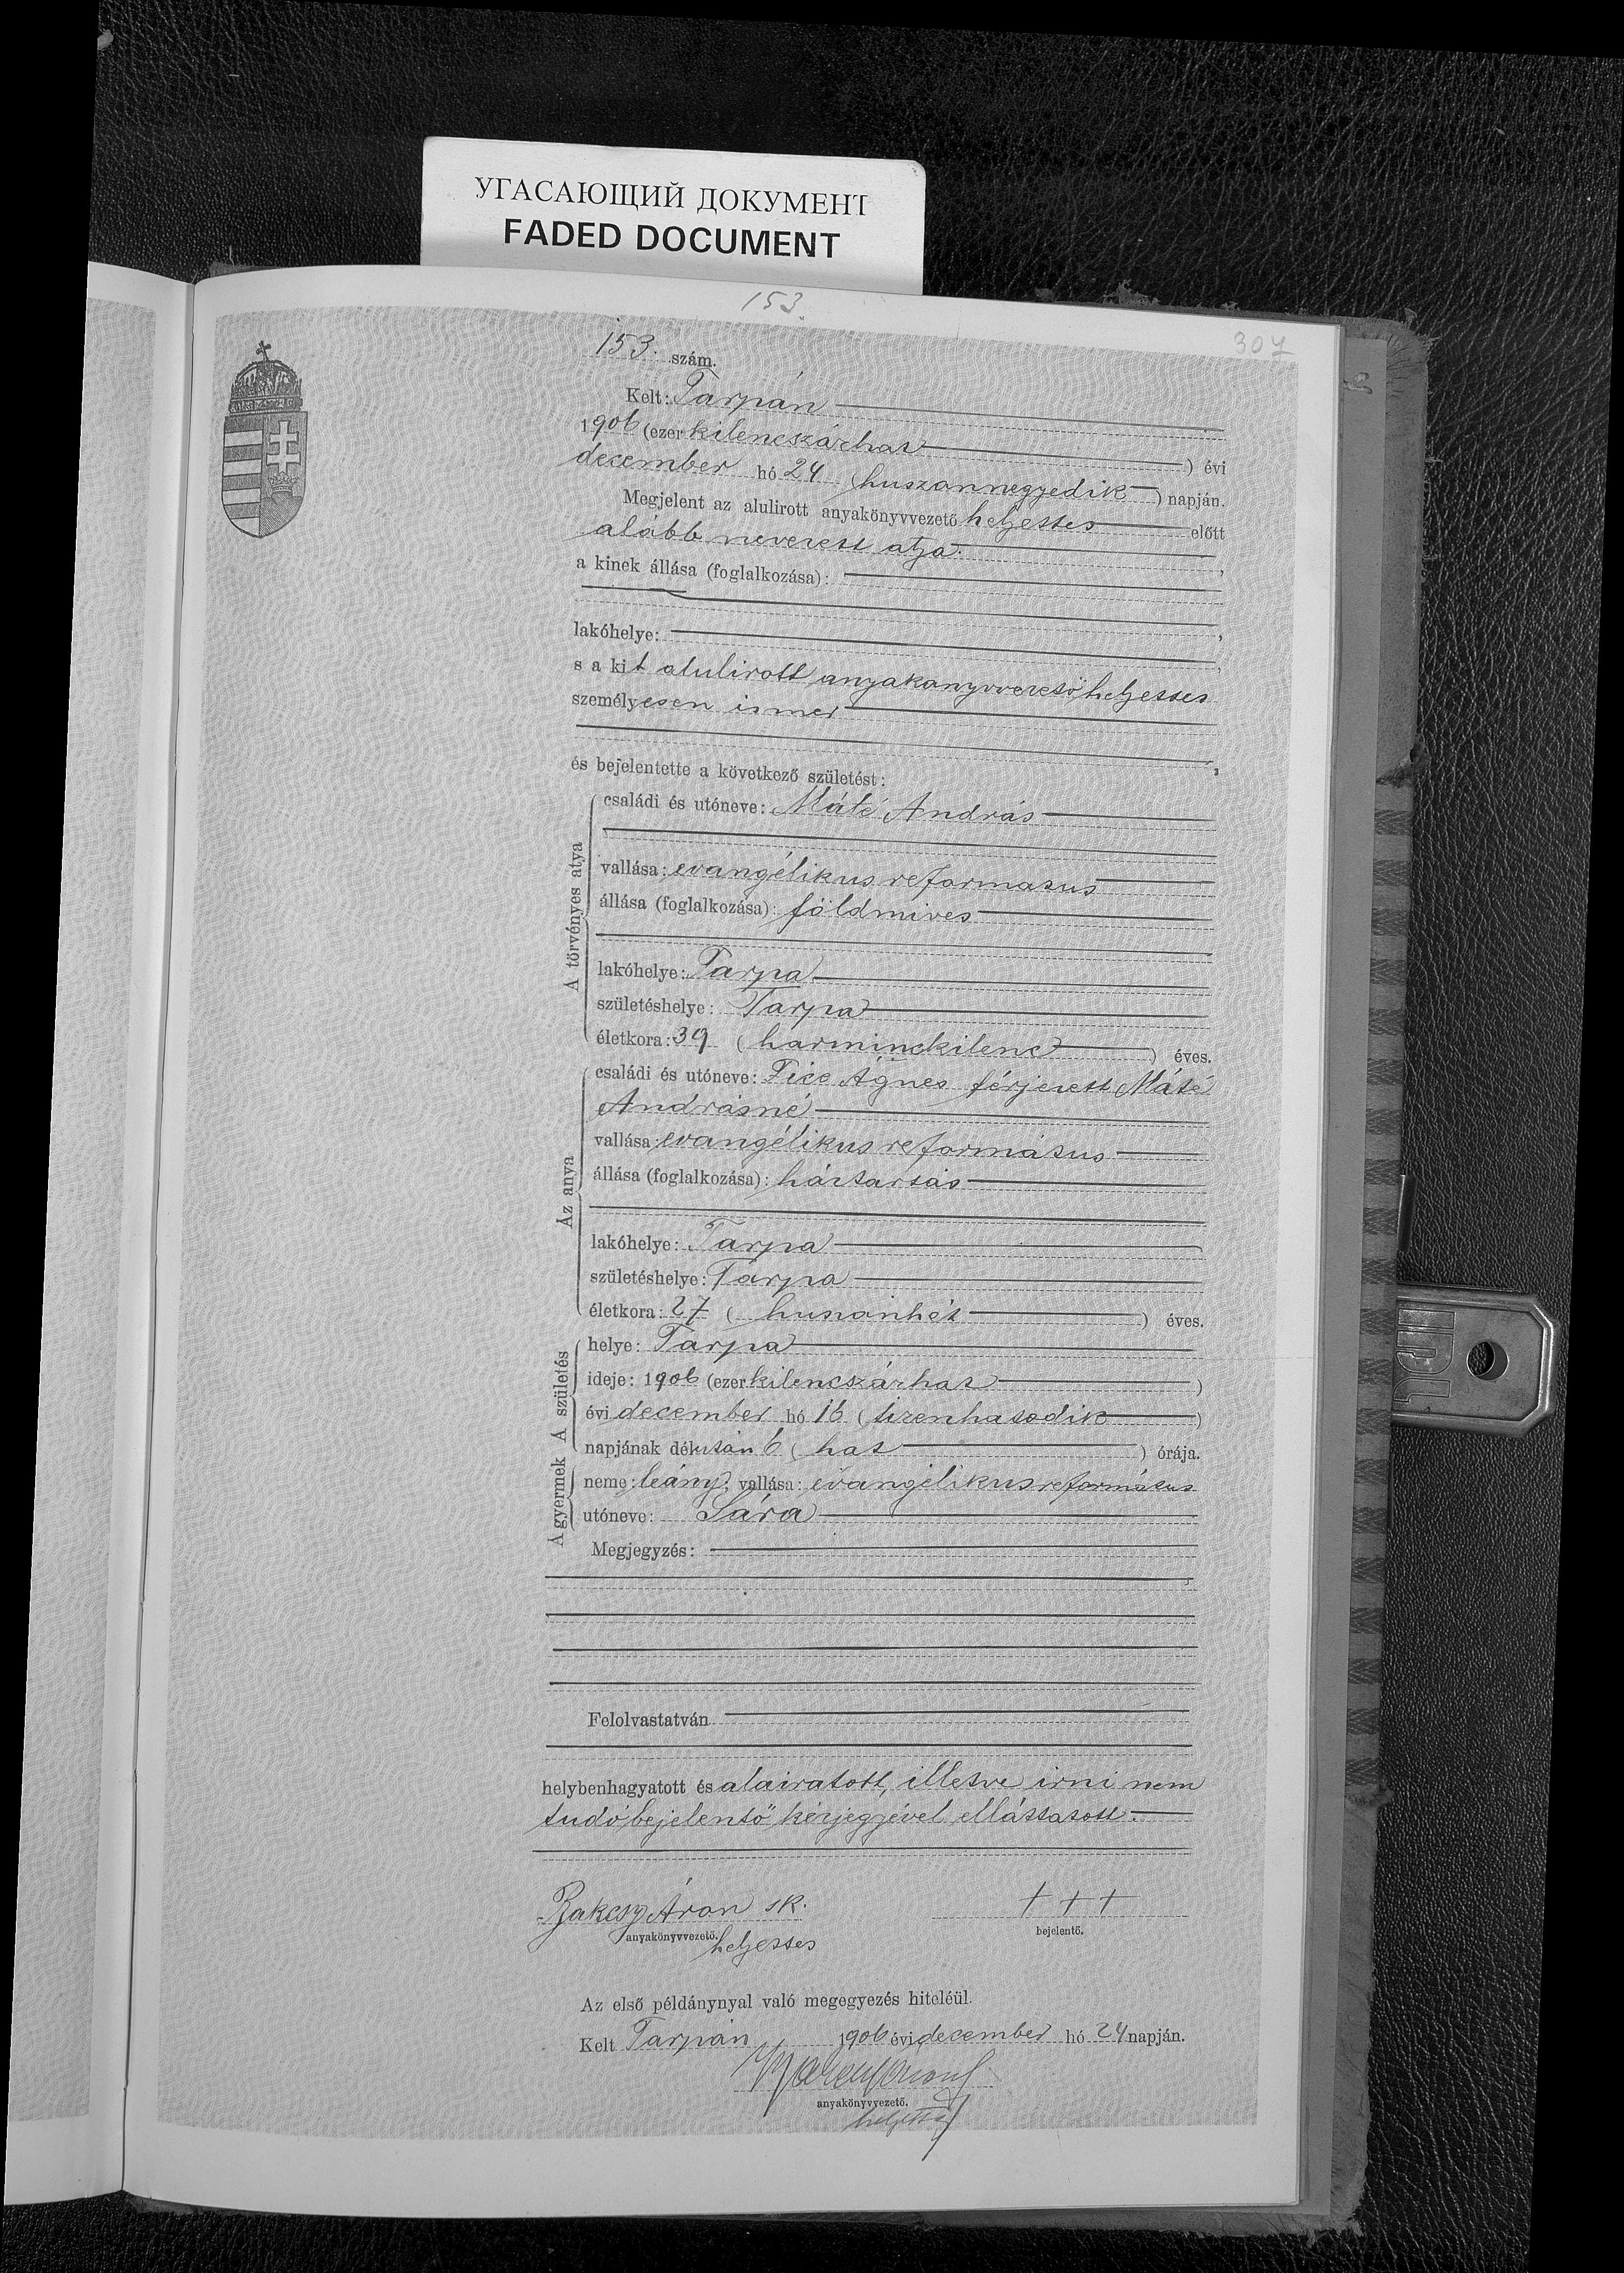 УГАСАЮЩИЙ ДОКУМЕНТ
FADED DOCUMENT
153.
307
153. szám.
Kelt: Tarpán
1906 (ezer kilencszázhat) évi
december hó 24 (huszonnegyedik) napján.
Megjelent az alulirott anyakönyvvezető helyettes előtt
alább nevezett atya.
a kinek állása (foglalkozása):
lakóhelye:
s a kit alulirott anyakönyvvezető helyettes
személyesen ismer
és bejelentette a következő születést:
A törvényes atya
családi és utóneve: Máté András
vallása: evangélikus reformatus
állása (foglalkozása): földmives
lakóhelye: Tarpa
születéshelye: Tarpa
életkora: 39 (harminckilenc) éves.
Az anya
családi és utóneve: Fice Ágnes férjezett Máté
Andrásné
vallása: evangélikus református
állása (foglalkozása): háztartás
lakóhelye: Tarpa
születéshelye: Tarpa
életkora: 27 (huszonhét) éves.
A születés
helye: Tarpa
ideje: 1906 (ezer kilencszázhat)
évi december hó 16 (tizenhatodik)
napjának délután 6 (hat) órája.
A gyermek
neme: leány; vallása: evangélikus református
utóneve: Sára
Megjegyzés:
Felolvastatván
helybenhagyatott és aláiratott, illetve irni nem
tudó bejelentő kézjegyével elláttatott.
Bakcsy Áron sk. +++
anyakönyvvezető. bejelentő.
helyettes
Az első példánynyal való megegyezés hiteléül.
Kelt Tarpán 1906 évi december hó 24 napján.
Bakcsy Áron
anyakönyvvezető.
helyettes